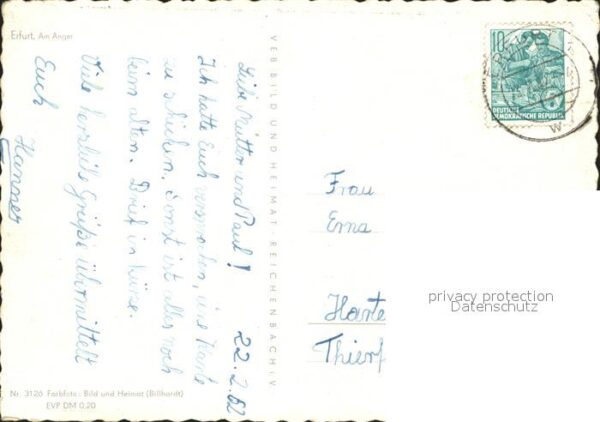 Erfurt, Am Anger
Liebe Mutter und Paul!
22.2.62
Ich hatte Euch versprochen, eine Karte
zu schicken. Sonst ist alles noch
beim alten. Brief in Kürze.
Viele herzliche Grüße übermittelt
Euch
Hannes
VEB BILD UND HEIMAT · REICHENBACH i. V.
10
DEUTSCHE
DEMOKRATISCHE REPUBLIK
Frau
Erna
Harte
Thierf
privacy protection
Datenschutz
Nr. 3126 Farbfoto: Bild und Heimat (Billhardt)
EVP DM 0,20